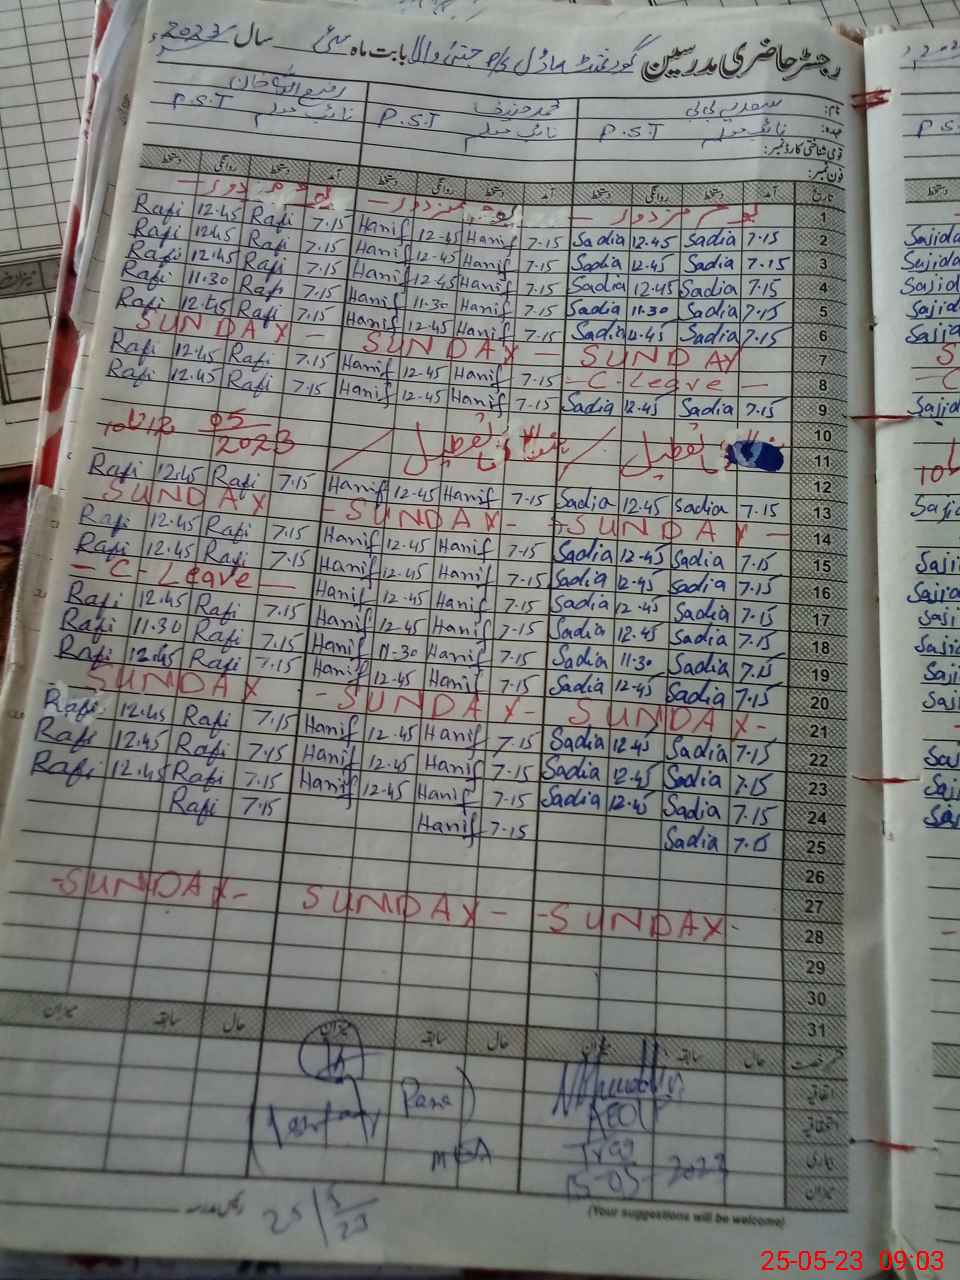 رجسٹر حاضری مدرسین گورنمنٹ ماڈل P/S جتوئی والا بابت ماہ مئی سال 2023ء
نام: سعدیہ بی بی محمد حنیف رفیع اللہ خان
عہدہ: نائب معلم P.S.T نائب معلم P.S.T نائب معلم P.S.T
قومی شناختی کارڈ نمبر:
فون نمبر:
تاریخ آمد دستخط روانگی دستخط آمد دستخط روانگی دستخط آمد دستخط روانگی دستخط
1 یوم مزدور - یوم مزدور - یوم مزدور -
2 7.15 Sadia 12.45 Sadia 7.15 Hanif 12.45 Hanif 7.15 Rafi 12.45 Rafi
3 7.15 Sadia 12.45 Sadia 7.15 Hanif 12.45 Hanif 7.15 Rafi 12.45 Rafi
4 7.15 Sadia 12.45 Sadia 7.15 Hanif 12.45 Hanif 7.15 Rafi 12.45 Rafi
5 7.15 Sadia 11.30 Sadia 7.15 Hanif 11.30 Hanif 7.15 Rafi 11.30 Rafi
6 7.15 Sadia 12.45 Sadia 7.15 Hanif 12.45 Hanif 7.15 Rafi 12.45 Rafi
7 SUNDAY SUNDAY - SUNDAY -
8 - C-Leave - 7.15 Hanif 12.45 Hanif 7.15 Rafi 12.45 Rafi
9 7.15 Sadia 12.45 Sadia 7.15 Hanif 12.45 Hanif 7.15 Rafi 12.45 Rafi
10
11 تعطیل تعطیل 10 تا 12 05/2023
12
13 7.15 Sadia 12.45 Sadia 7.15 Hanif 12.45 Hanif 7.15 Rafi 12.45 Rafi
14 SUNDAY - - SUNDAY - SUNDAY
15 7.15 Sadia 12.45 Sadia 7.15 Hanif 12.45 Hanif 7.15 Rafi 12.45 Rafi
16 7.15 Sadia 12.45 Sadia 7.15 Hanif 12.45 Hanif 7.15 Rafi 12.45 Rafi
17 7.15 Sadia 12.45 Sadia 7.15 Hanif 12.45 Hanif - C-Leave -
18 7.15 Sadia 12.45 Sadia 7.15 Hanif 12.45 Hanif 7.15 Rafi 12.45 Rafi
19 7.15 Sadia 11.30 Sadia 7.15 Hanif 11.30 Hanif 7.15 Rafi 11.30 Rafi
20 7.15 Sadia 12.45 Sadia 7.15 Hanif 12.45 Hanif 7.15 Rafi 12.45 Rafi
21 SUNDAY - - SUNDAY - SUNDAY
22 7.15 Sadia 12.45 Sadia 7.15 Hanif 12.45 Hanif 7.15 Rafi 12.45 Rafi
23 7.15 Sadia 12.45 Sadia 7.15 Hanif 12.45 Hanif 7.15 Rafi 12.45 Rafi
24 7.15 Sadia 12.45 Sadia 7.15 Hanif 12.45 Hanif 7.15 Rafi 12.45 Rafi
25 7.15 Sadia 7.15 Hanif 7.15 Rafi
26
27
28 - SUNDAY - SUNDAY - - SUNDAY -
29
30
31
قسم رخصت حال سابقہ میزان حال سابقہ میزان حال سابقہ میزان
اتفاقیہ
استحقاقیہ
بیماری
میزان
Rana
MEA
AEO
15-05-2023
25/5/23
(Your suggestions will be welcome)
25-05-23 09:03